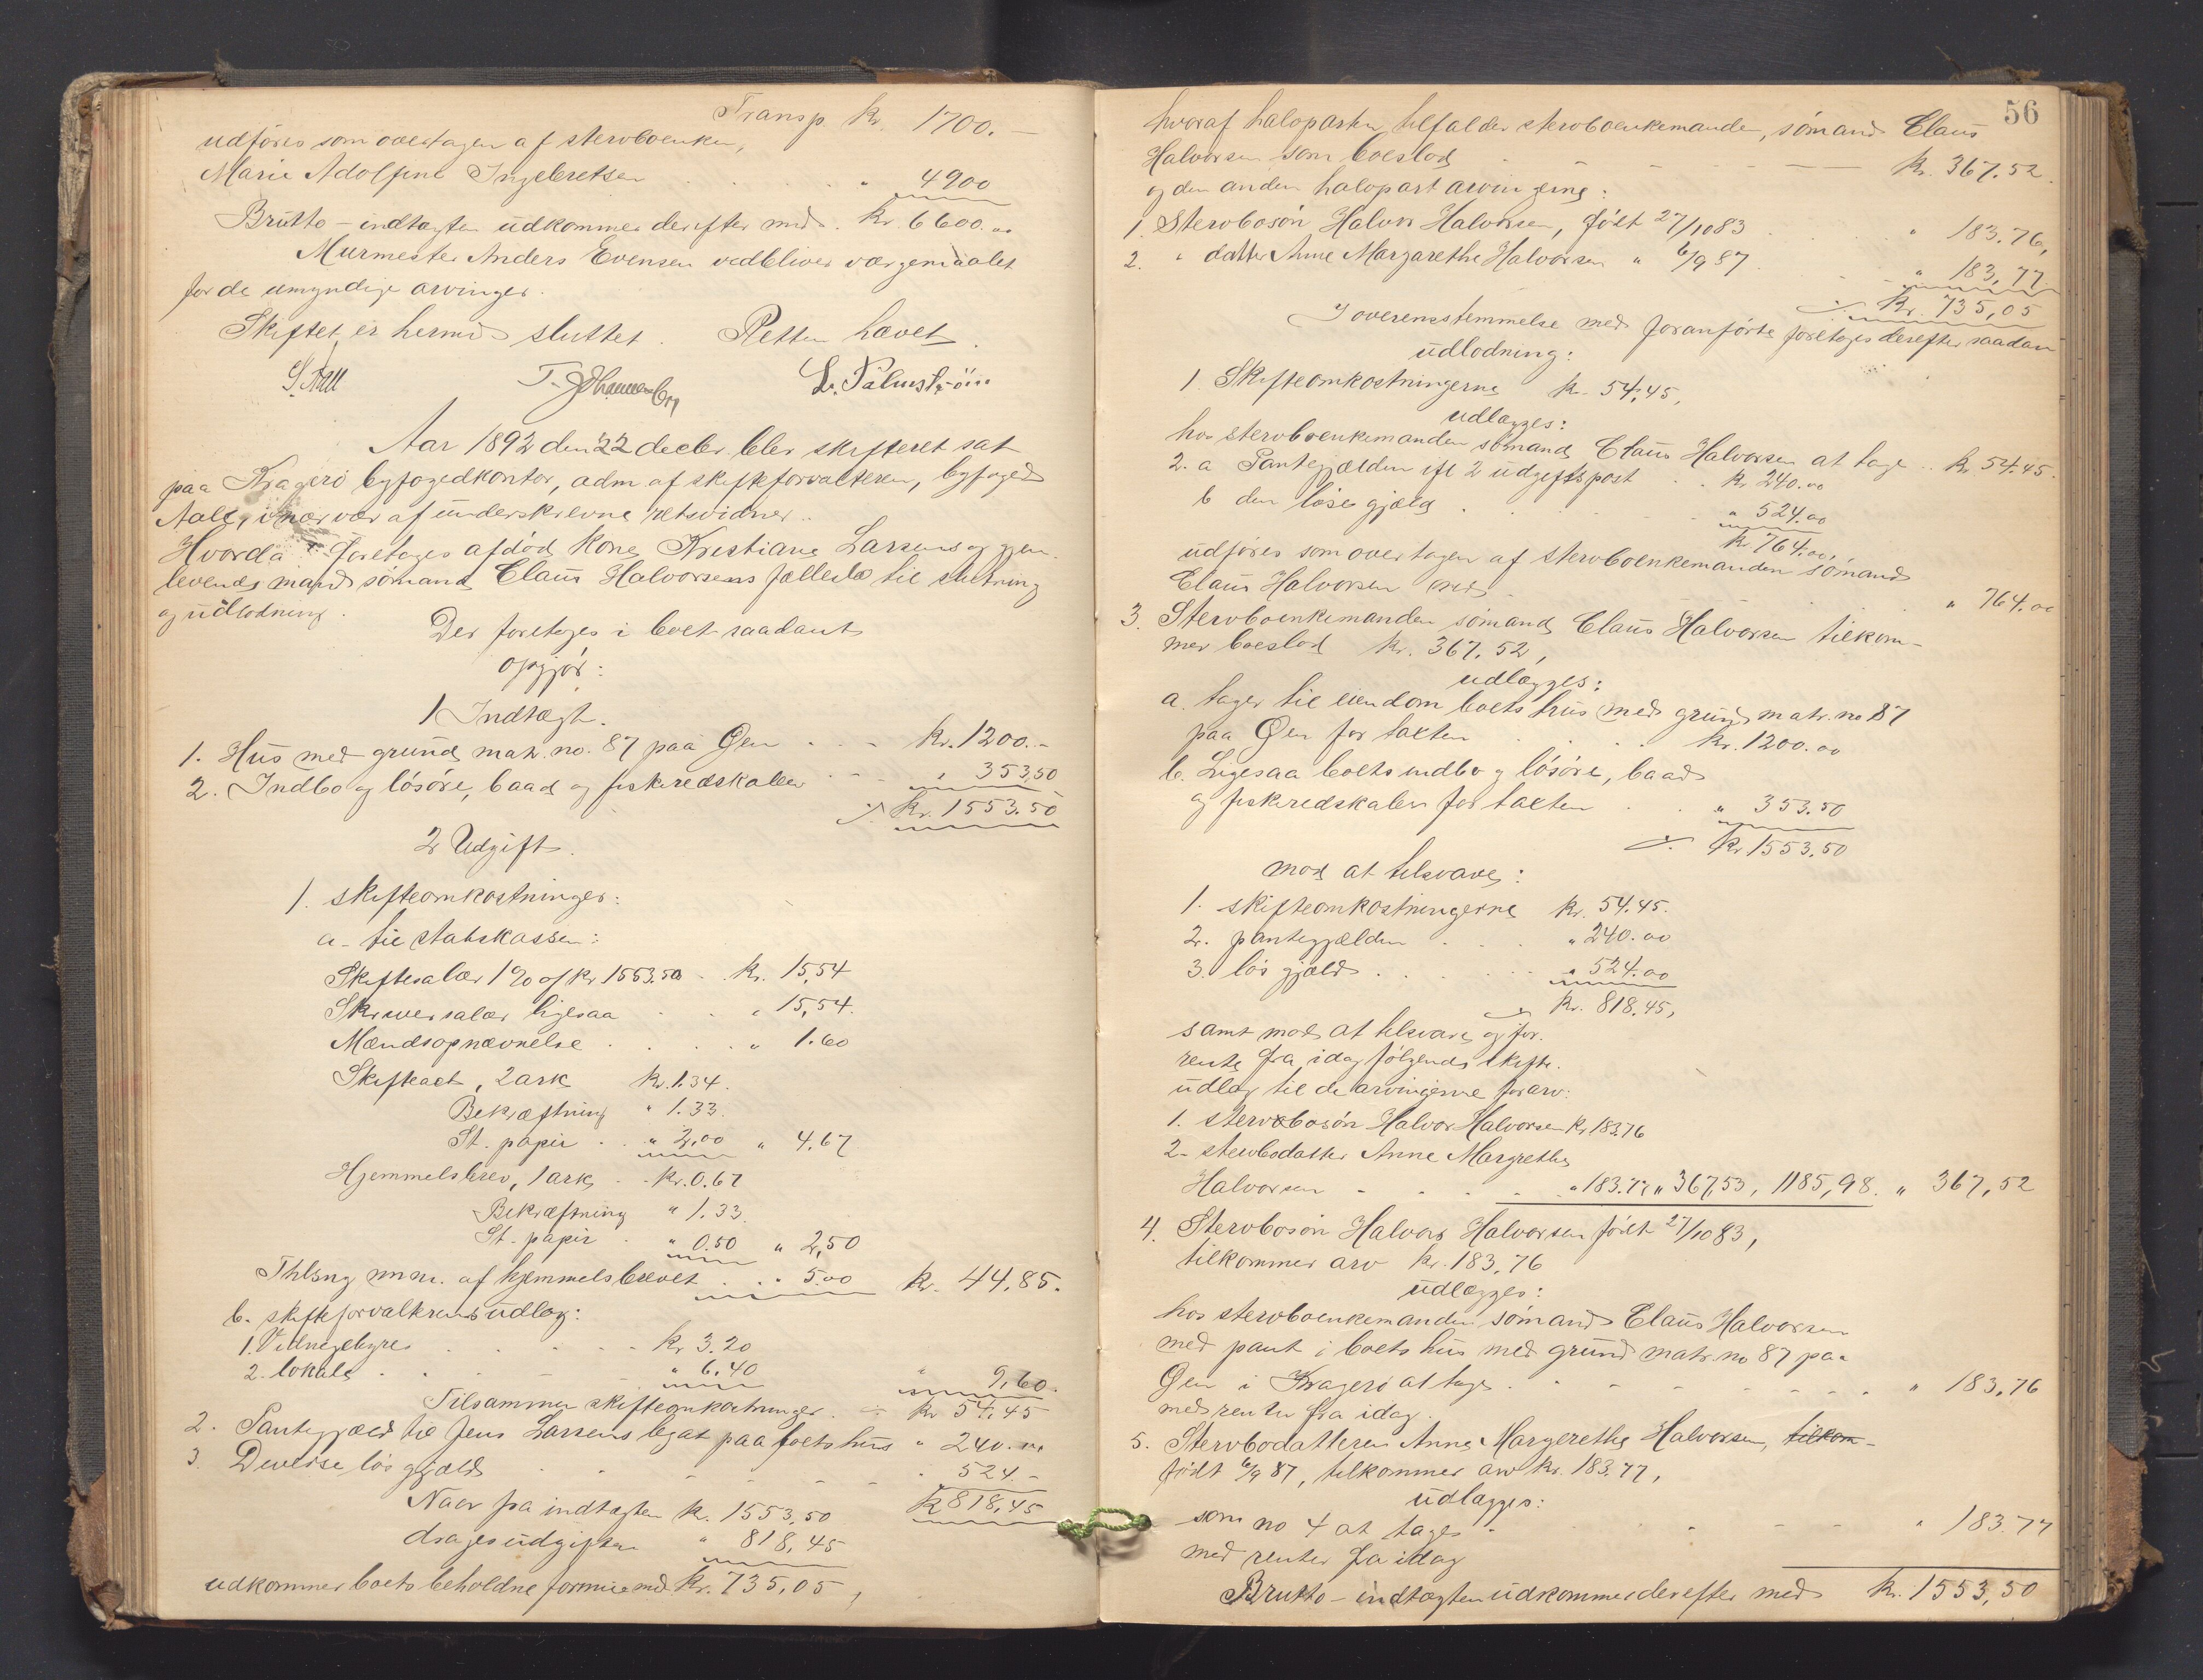 Transp kr. 1700.-
udföres som overtagen af stervboenken,
Marie Adolfine Ingebretsen . . . " 4900
Brutto-indtægten udkommer derefter med . kr. 6600.00
Murmester Anders Evensen vedbliver værgemaalet
for de umyndige arvinger.
Skiftet er hermed sluttet. Retten hævet.
S. Aall T. Johannesen L. Palmström
Aar 1892 den 22 decbr. blev skifteret sat
paa Kragerö byfogedkontor, adm af skifteforvalteren, byfoged
Aall, i nærvær af underskrevne retsvidner.
Hvorda: Foretoges afdöd kone Kristiane Larsens og gjen-
levende mand sömand Claus Halvorsens fællesbo til slutning
og udlodning.
Der foretoges i boet saadant
opgjör:
1 Indtægt.
1. Hus med grund matr. no. 87 paa Öen . . - kr. 1200.-
2. Indbo og lösöre, baad og fiskeredskaber . - - " 353,50
Kr. 1553.50
2 Udgift.
1. skifteomkostninger:
a- til statskassen:
Skiftesalær 1% af kr 1553.50 . . kr. 15,54
Skriversalær ligesaa . . " 15,54.
Mændsopnævnelse . . . . " 1.60
Skifteact, 2 ark kr. 1.34.
Bekræftning " 1.33.
St. papir . . " 2,00 " 4.67
Hjemmelsbrev, 1 ark . . kr. 0.67
Bekræftning " 1.33
St. papir . " 0.50 " 2,50
Thlsng m.m. af hjemmelsbrevet . . . 5.00 kr. 44,85.
b. skifteforvalterens udlæg:
1. Vidnegebyr . . . . kr 3.20
2. lokale . . . - " 6,40 " 9,60.
Tilsammen skifteomkostninger . - kr 54,45
2. Pantegjæld til Jens Larsens legat paa boets hus " 240.00
3. Diverse lös gjæld . . - - - . . 524.-
kr 818,45
Naar fra indtægten kr. 1553,50
drages udgiften " 818,45
udkommer boets beholdne formue med kr. 735,05,
56
hvoraf halvparten tilfalder stervboenkemanden, sömand Claus
Halvorsen som boeslod - - - - kr. 367.52.
og den anden halvpart arvingerne:
1. Sterbosön Halvor Halvorsen, födt 27/10 83 . . . " 183.76,
2. " datter Anne Margarethe Halvorsen " 6/9 87 . . . " 183,77
Kr. 735,05
I overensstemmelse med foranförte foretoges derefter saadan
udlodning:
1. Skifteomkostningerne kr. 54,45,
udlægges:
hos sterboenkemanden sömand Claus Halvorsen at tage . . kr 54.45.
2. a Pantegjælden ifl 2 udgiftspost . . kr 240.00
b den löse gjæld . . . . . - - " 524.00
kr 764.00,
udföres som overtagen af sterboenkemanden sömand
Claus Halvorsen med - . . . " 764.00
3. Sterboenkemanden sömand Claus Halvorsen tilkom-
mer boeslod kr. 367,52,
udlægges:
a. tager til eiendom boets hus med grund matr. no 87
paa Öen for taxten . . . . kr. 1200.00
b. Ligesaa boets indbo og lösöre, baad
og fiskeredskaber for taxten . . " 353.50
kr 1553.50
mod at tilsvare:
1. skifteomkostningerne kr. 54.45.
2. pantegjælden . . . " 240.00
3. lös gjæld . . . . . - - " 524.00
kr. 818,45,
samt mod at tilsvare og for-
rente fra idag fölgende skifte-
udlæg til de arvingerne for arv:
1. sterbosön Halvor Halvorsen kr 183.76
2- sterbodatter Anne Margrethe
Halvorsen - . . - . . " 183.77 " 367,53, 1185,98. " 367,52
4. Sterbosön Halvor Halvorsen födt 27/10 83,
tilkommer arv kr. 183,76
udlægges:
hos sterboenkemanden sömand Claus Halvorsen
med pant i boets hus med grund matr. no 87 paa
Öen i Kragerö at tage . . - - - - - . . " 183,76
med renter fra idag.
5. Sterbodatteren Anne Margrethe Halvorsen, tilkom-
födt 6/9 87, tilkommer arv kr. 183.77,
udlægges:
som no 4 at tages . . . . - - . " 183.77
med renter fra idag
Brutto-indtægten udkommer derefter med kr. 1553,50